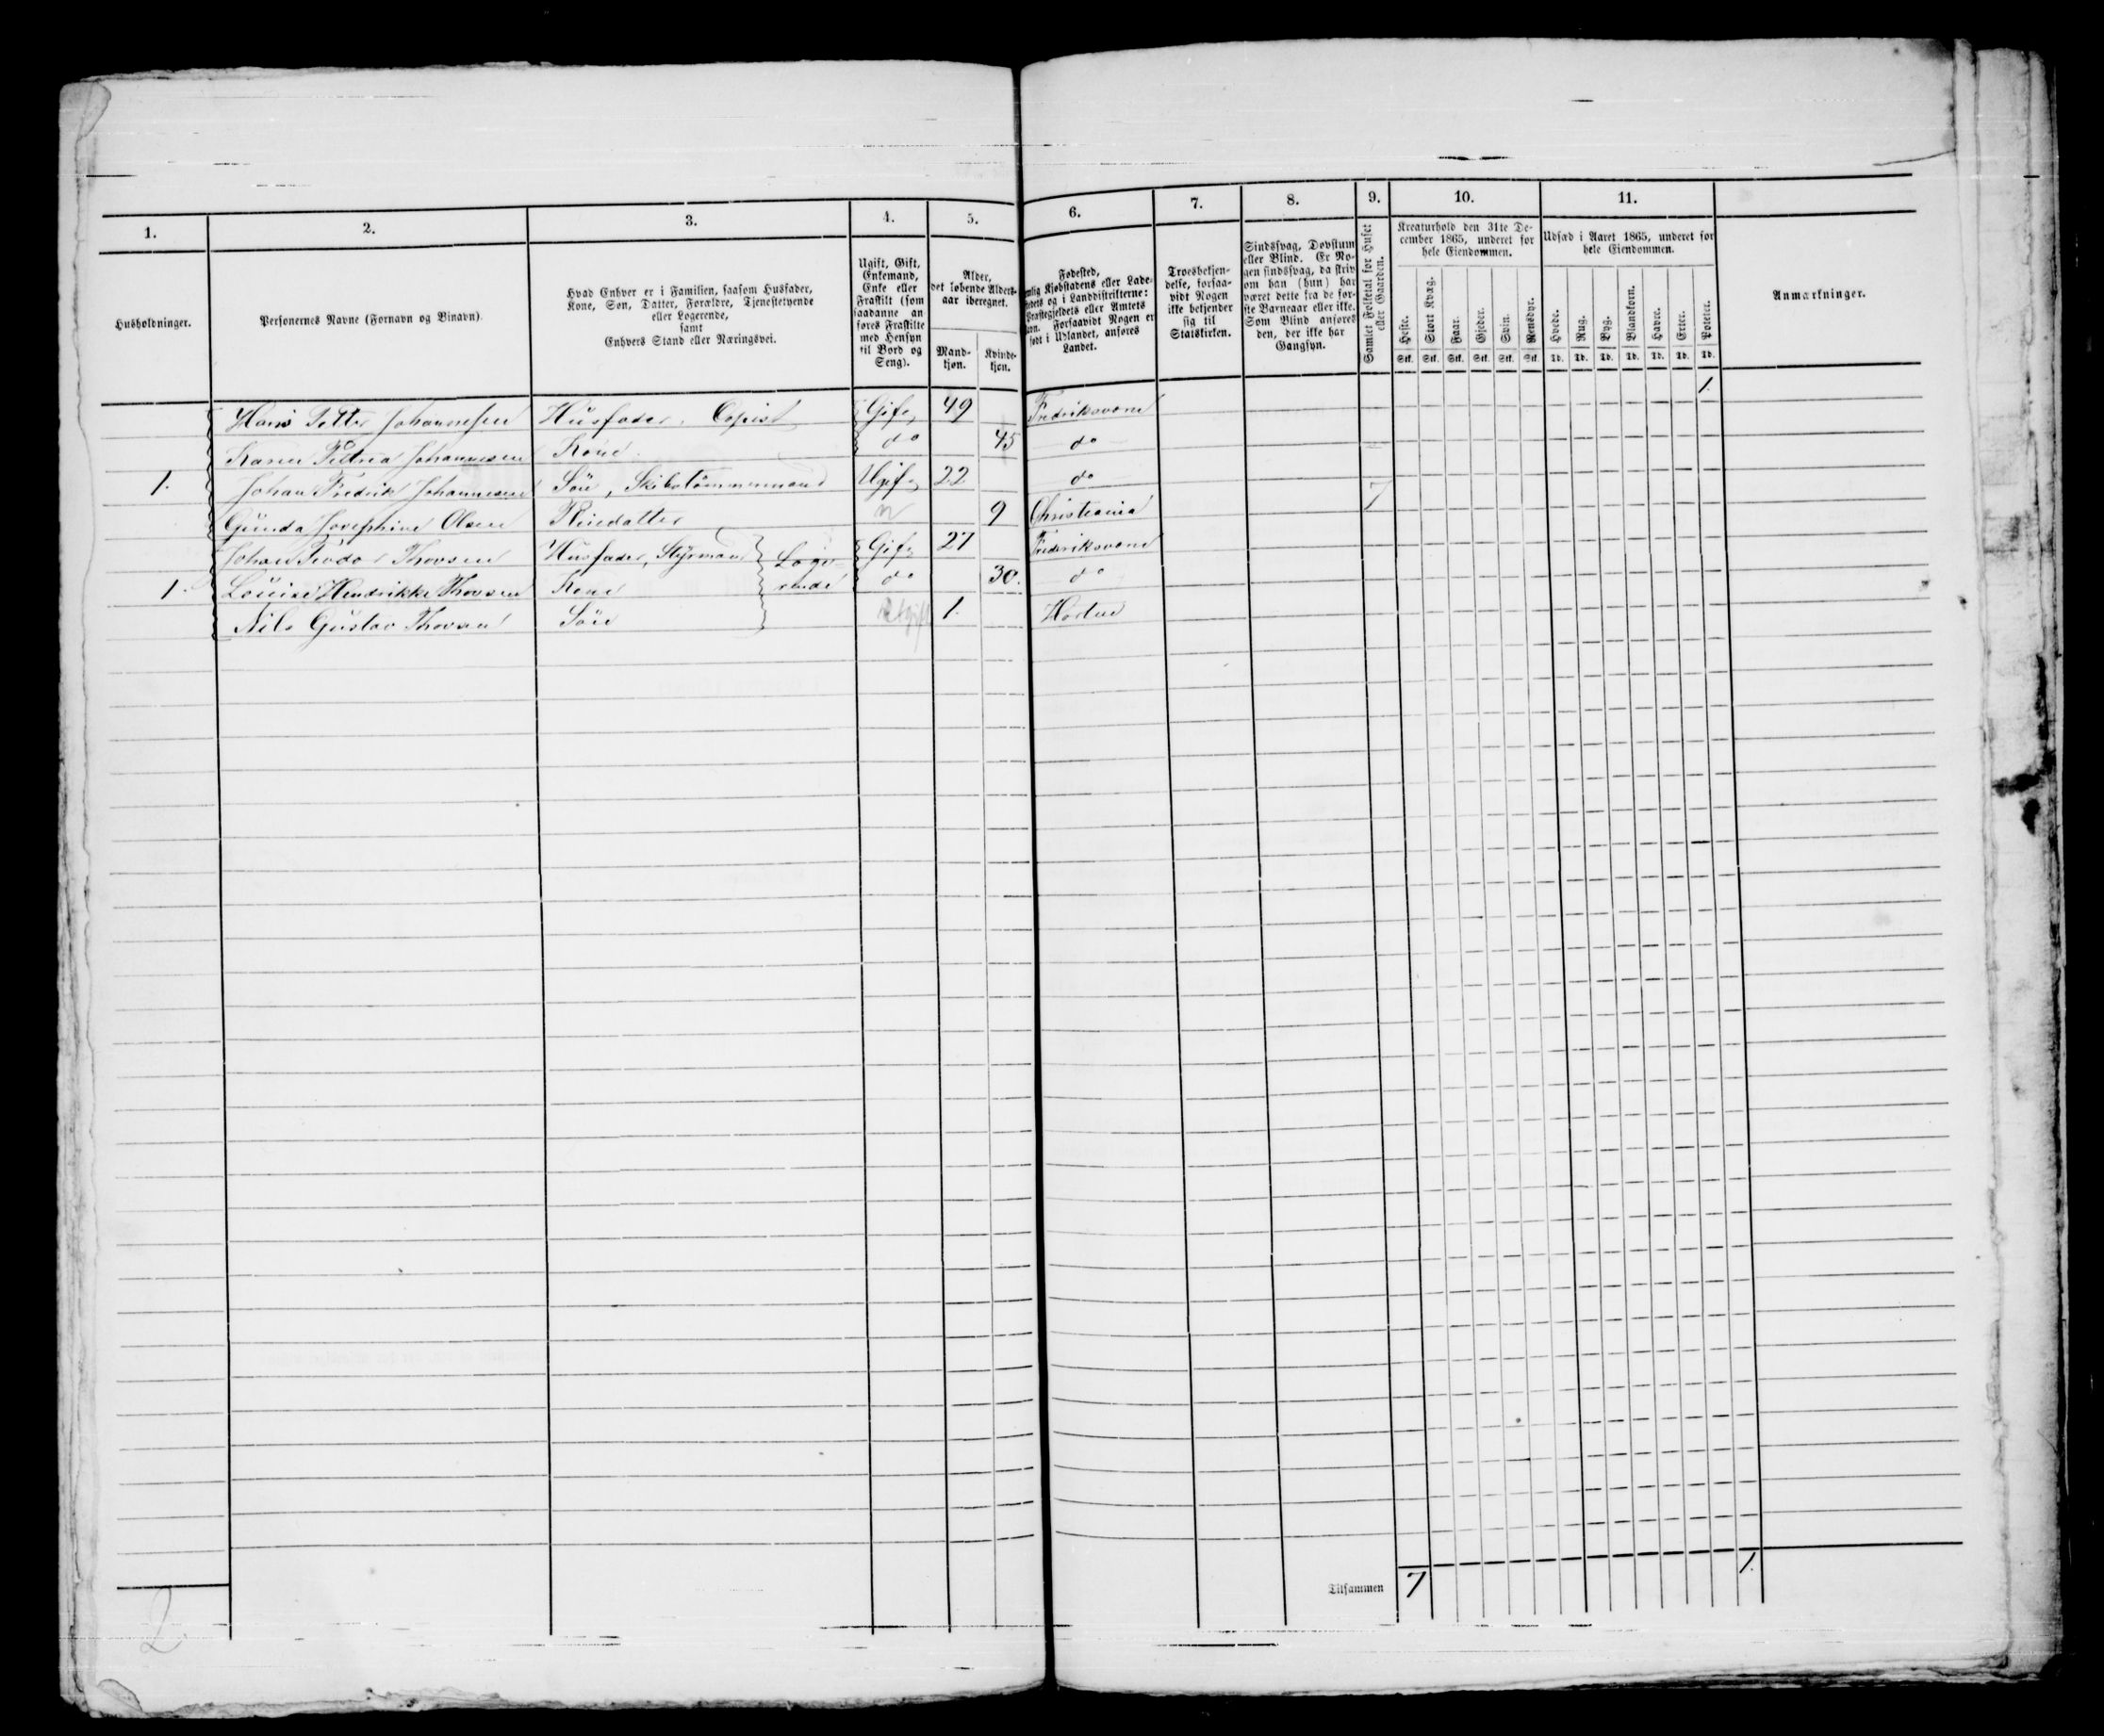 1. 2. 3. 4. 5. 6. 7. 8. 9. 10. 11.
Husholdninger.
Personernes Navne (Fornavn og Binavn)
Hvad Enhver er i Familien, saasom Husfader,
Kone, Søn, Datter, Forældre, Tjenestetyende
eller Logerende,
samt
Enhvers Stand eller Næringsvei.
Ugift, Gift,
Enkemand,
Enke eller
Fraskilt (som
saadanne an
føres Fraskilte
med Hensyn
til Bord og
Seng).
Alder,
det løbende Alders-
aar iberegnet.
Mand-
kjøn.
Kvinde-
kjøn.
Fødested,
Kjøbstadens eller Lade-
og i Landdistrikterne:
Præstegjeldets eller Amtets
Forsaavidt Nogen er
født i Udlandet, anføres
Landet.
Troesbekjen-
delse, forsaa-
vidt Nogen
ikke bekjender
sig til
Statskirken.
Sindssvag, Døvstum
eller Blind. Er No-
gen sindssvag, da skriv
om han (hun) har
været dette fra de før-
ste Barneaar eller ikke.
Som Blind anføres
den, der ikke har
Gangsyn.
Samlet Folketal for Huset
eller Gaarden.
Kreaturhold den 31te De-
cember 1865, underet for
hele Eiendommen.
Heste. Stort Kvæg. Faar. Gjeder. Svin. Rensdyr.
Stk. Stk. Stk. Stk. Stk. Stk.
Udsæd i Aaret 1865, underet for
hele Eiendommen.
Hvede. Rug. Byg. Blandkorn. Havre. Erter. Poteter.
Td. Td. Td. Td. Td. Td. Td.
Anmærkninger.
Hans Petter Johannesen Husfader, Copist Gift 49 Fredriksværn 1.
Karen Petrea Johannesen Kone do 45 do
1. Johan Fredrik Johannesen Søn, Skibstømmermand Ugift 22 do 7
Gunda Josephine Olsen Pleiedatter 9 Christiania
Johan Teodor Thovsen Husfader, Styrmand Loge- Gift 27 Fredriksværn
1. Louise Hendrikke Thovsen Kone rende do 30. do
Nils Gustav Thovsen Søn Ugift 1. Horten
Tilsammen 7 1.
2